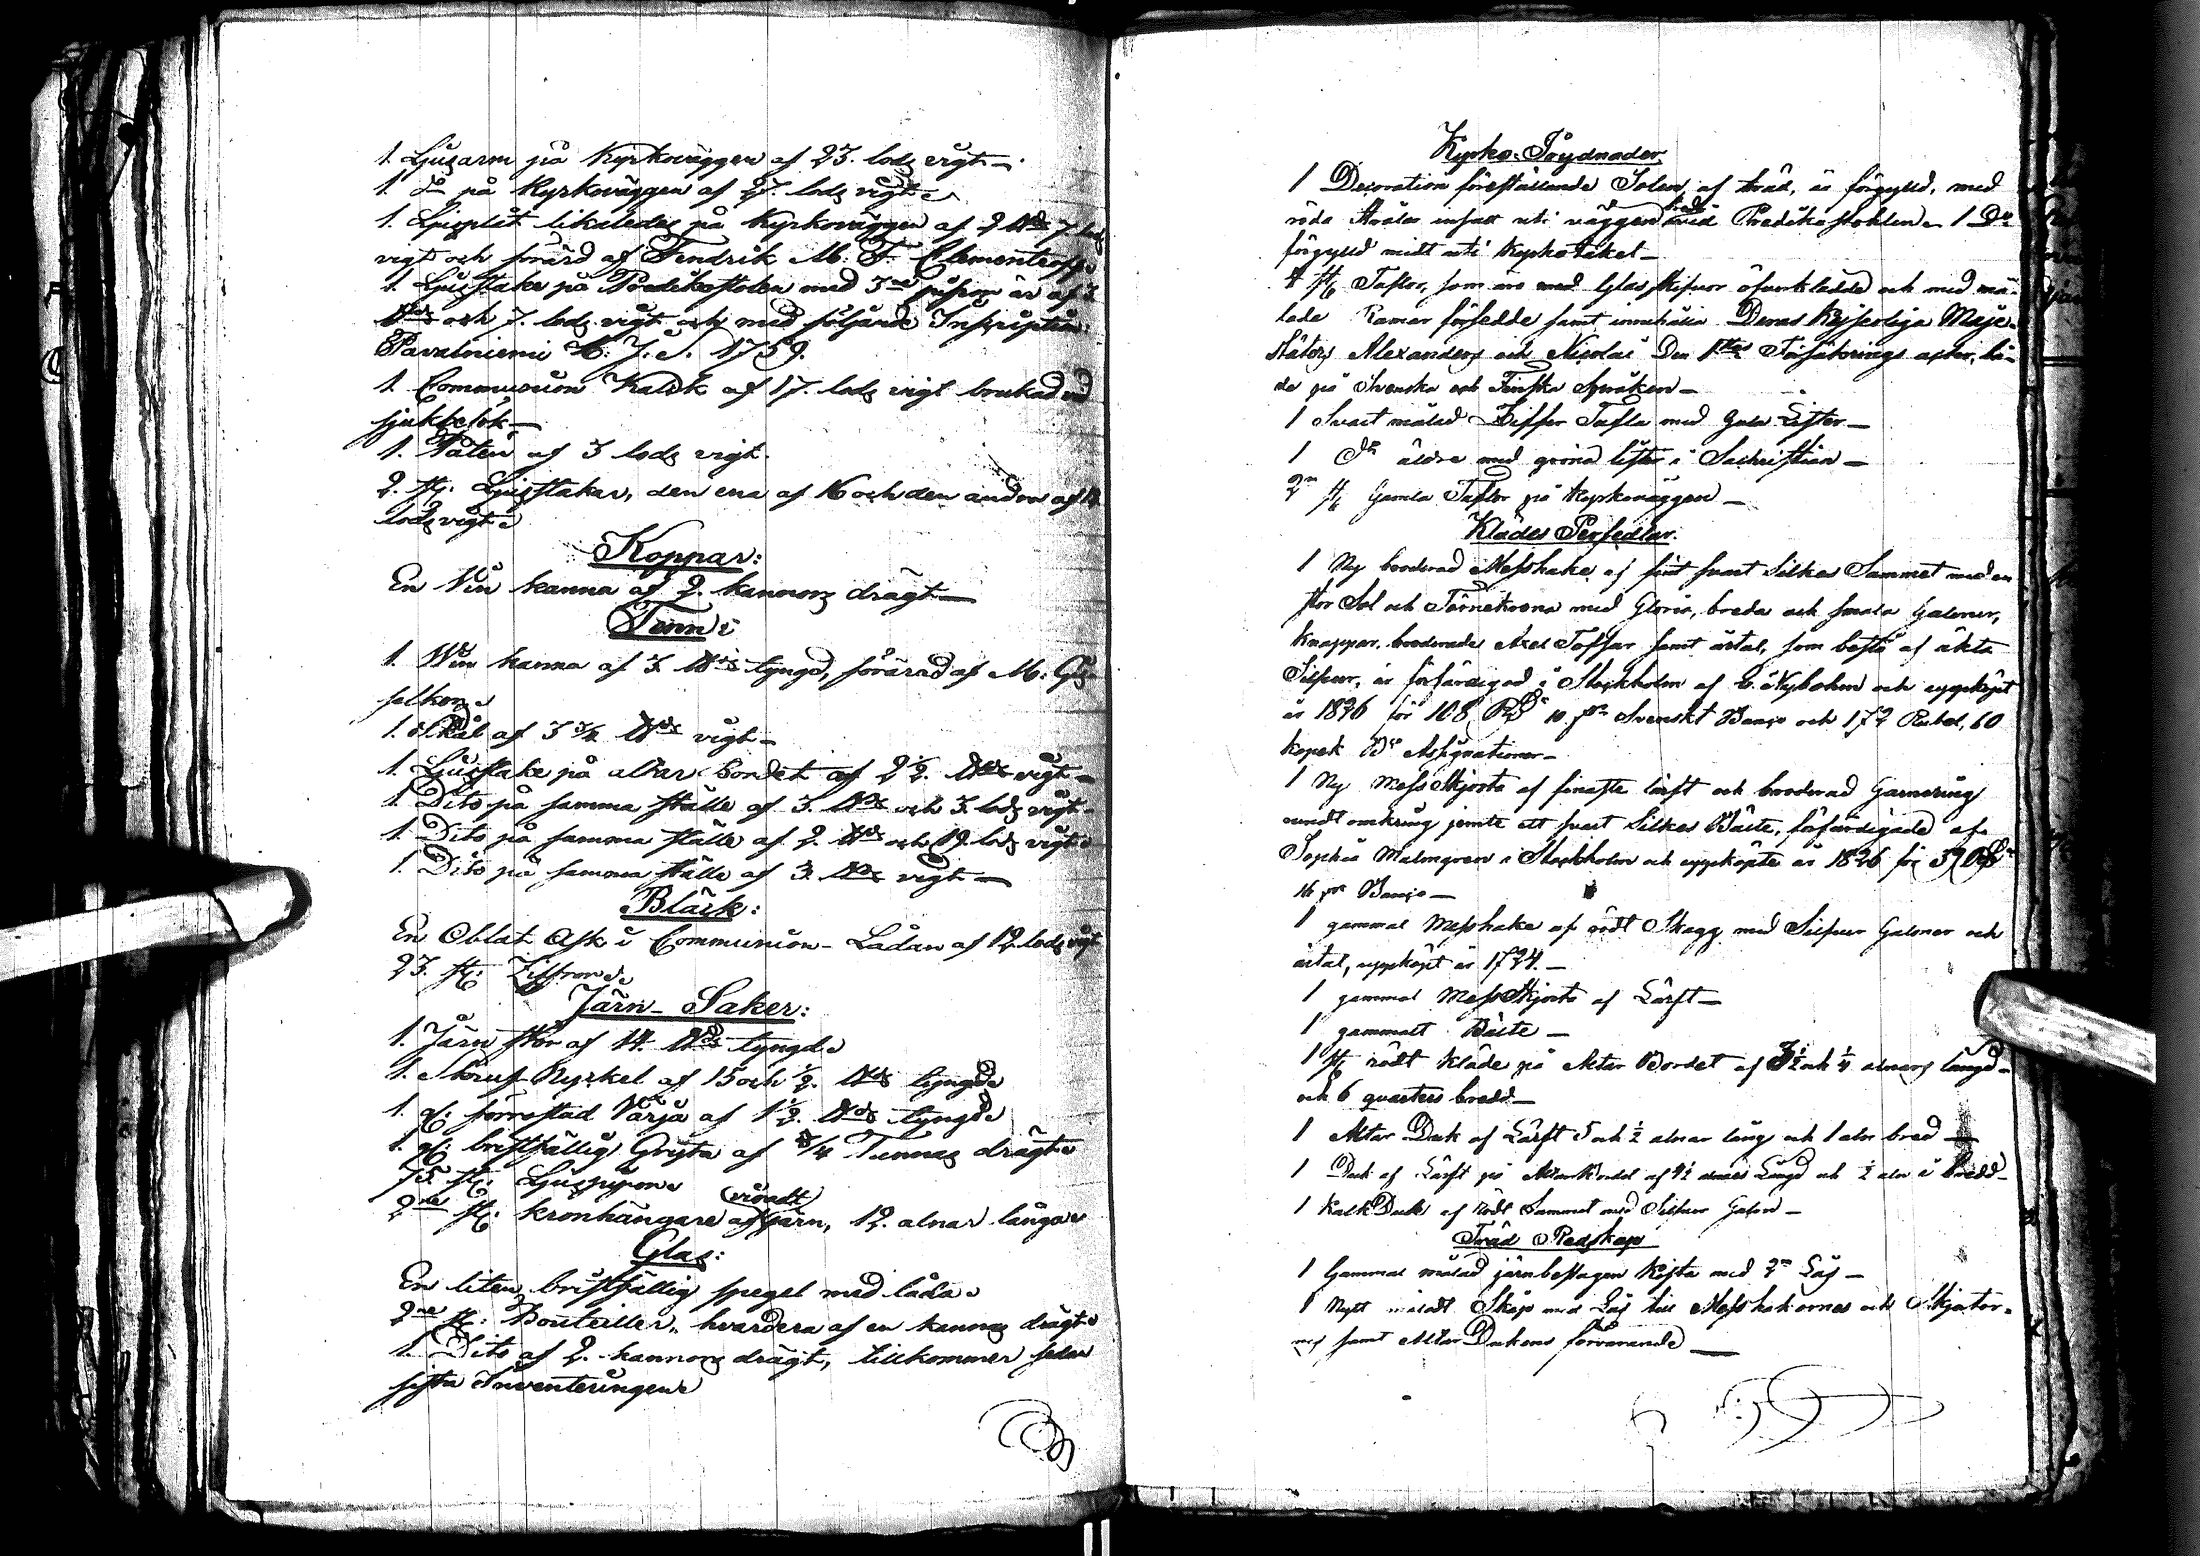 1. Ljusarm på Kyrkoväggen af 23. lods vigt.
1. do på Kyrkoväggen af 27. lods vigt.
1. Ljusplåt likaledes på Kyrkoväggen af 2 7 lods
vigt och förärd af Fendrik M. F. Clementeoff
1. Ljusstake på Predikostolen med 3ne pipor är af 3
och 7. lods vigt och med följande Inscription:
Pavalniemi H. J. S. 1759.
1. Communion Kalck af 17. lods vigt brukad vid
sjukbesök
1. Patén af 3 lods vigt.
2. st: Ljusstakar, den ena af 16 och den andra af 18
lods vigt
Koppar:
En Vin kanna af 2. kannors drägt
Tenn:
1. Win kanna af 3. tyngd, förärad af M: Gis
selkors
1. Skål af 3 3/4 vigt
1. Ljusstake på altar bordet af 2 1/2. vigt
1. Dito på samma ställe af 3. och 3. lods vigt
1. Dito på samma ställe af 2. och 19. lods vigt
1. Dito på samma ställe af 3. vigt
Bläck:
En Oblat Ask i Communion-Lådan af 12 lods vigt
23. st: Ziffror
Järn-Saker:
1. Järn stör af 14. tyngd
1. Skruf Nyckel af 15 och 1/2. tyngd
1. g: förrostad Värja af 1 1/2. tyngd
1. g: bristfällig Gryta af 3/4 Tunnas drägt
75. st: Ljuspipor
2ne st: kronhängare af (vriadt) järn, 12. alnar långa
Glas:
En liten bristfällig spegel med låda
2ne st: Bouteiller, hvardera af en kannas drägt
1. Dito af 2. kannors drägt, tillkommer sedan
sista Inventeringen
Kyrko-Prydnader
1 Decoration föreställande Solen, af träd, är förgyld, med
röda Strålar infatt uti väggen bredvid Predikostohlen 1 Do
förgyld midt uti Kyrkotaket
4 st Taflor, som äro med Glas skifvor öfverklädde och med må-
lade Ramar försedde samt innehålla Deras Kejserliga Maje-
stäters Alexanders och Nicolai Den 1stes Försäkrings acter, bå-
de på Svenska och Finska Språken
1 Svart målad Ziffer Tafla med Gula Lister
1 do äldre med gröna lister i Sachristian
2ne st Gamla Taflor på Kyrkoväggen
Klädes Persedlar
1 Ny broderad Messhake af fint svart Silkes Sammet med en
stor Sol och Törnekrona med Gloria, breda och smala Galoner,
Knappar, broderade Axel Toffsar samt årtal, som bestå af äkta
Silfver, är förfärdigad i Stockholm af E. Nyholm och uppköpt
år 1826 för 108 RD 10. Svenskt Banco och 172 Rubel, 60
kopek Assignationer
1 Ny Mess Skjorta af finaste lärft och broderad Garnering
rundt omkring jemte ett svart Silkes Bälte, förfärdigade af
Sophia Malmgren i Stockholm och uppköpte år 1826 för 37
16 Banco
1 gammal Messhake af rödt Skagg med Silfver Galoner och
årtal, uppköpt år 1724.
1 gammal Mess Skjorta af Lärft
1 gammalt Bälte
1 st rödt Kläde på Altar Bordet af och 1/4 alnars längd
och 6 quarters bredd
1 Altar Duk af Lärft 5 och 1/2 alnar lång och 1 aln bred
1 Duk af Lärft på Altarbordet af 4 1/2 alnars Längd och 1/2 aln i bredd
1 Kalk Duk af rödt Sammet med Silfver Galon
Träd Redskap
1 Gammal målad järnbeslagen Kista med 2ne Lås
1 Nytt måladt Skåp med Lås till Messhakarnes och Skjortor-
nes samt Altar Dukens förvarande